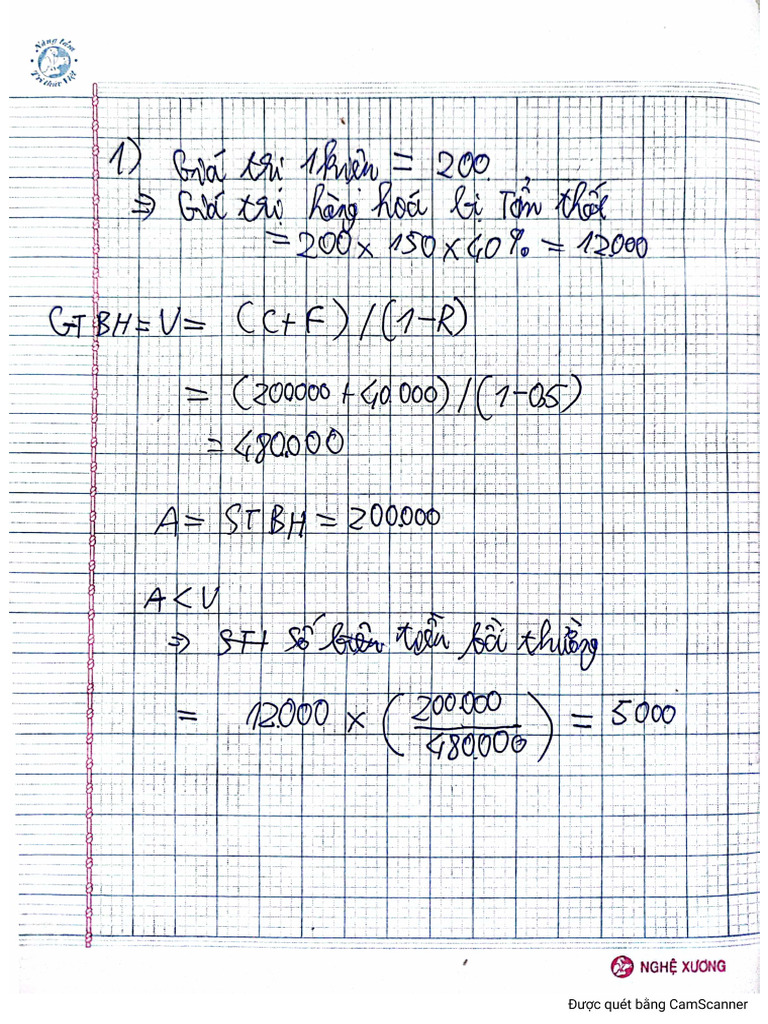 Nâng tầm
Trí thức Việt
1) Giá trị 1 kiện = 200
⇒ Giá trị hàng hoá bị Tổn thất
= 200 × 150 × 40% = 12000
GTBH = V = (C+F) / (1-R)
= (200000 + 40.000) / (1-0.5)
= 480.000
A = STBH = 200.000
A < V
⇒ Số tiền bồi thường
= 12.000 × (200.000 / 480.000) = 5000
NGHỆ XƯƠNG
Được quét bằng CamScanner